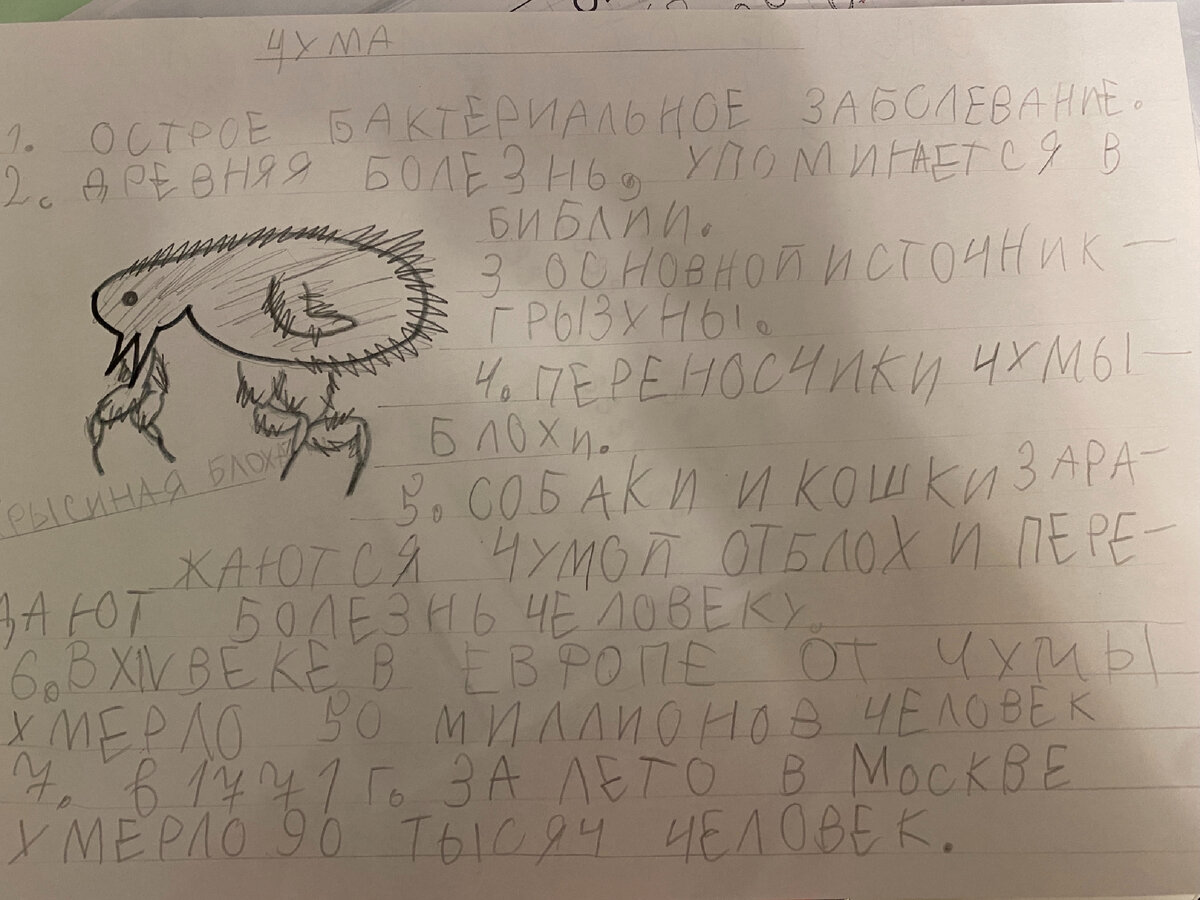 ЧУМА
1. ОСТРОЕ БАКТЕРИАЛЬНОЕ ЗАБОЛЕВАНИЕ.
2. ДРЕВНЯЯ БОЛЕЗНЬ. УПОМИНАЕТСЯ В
БИБЛИИ.
3 ОСНОВНОЙ ИСТОЧНИК –
ГРЫЗУНЫ.
4. ПЕРЕНОСЧИКИ ЧУМЫ –
БЛОХИ.
КРЫСИНАЯ БЛОХА
5. СОБАКИ И КОШКИ ЗАРА-
ЖАЮТСЯ ЧУМОЙ ОТ БЛОХ И ПЕРЕ-
ДАЮТ БОЛЕЗНЬ ЧЕЛОВЕКУ.
6. В XIV ВЕКЕ В ЕВРОПЕ ОТ ЧУМЫ
УМЕРЛО 50 МИЛЛИОНОВ ЧЕЛОВЕК
7. в 1771 г. ЗА ЛЕТО В МОСКВЕ
УМЕРЛО 90 ТЫСЯЧ ЧЕЛОВЕК.